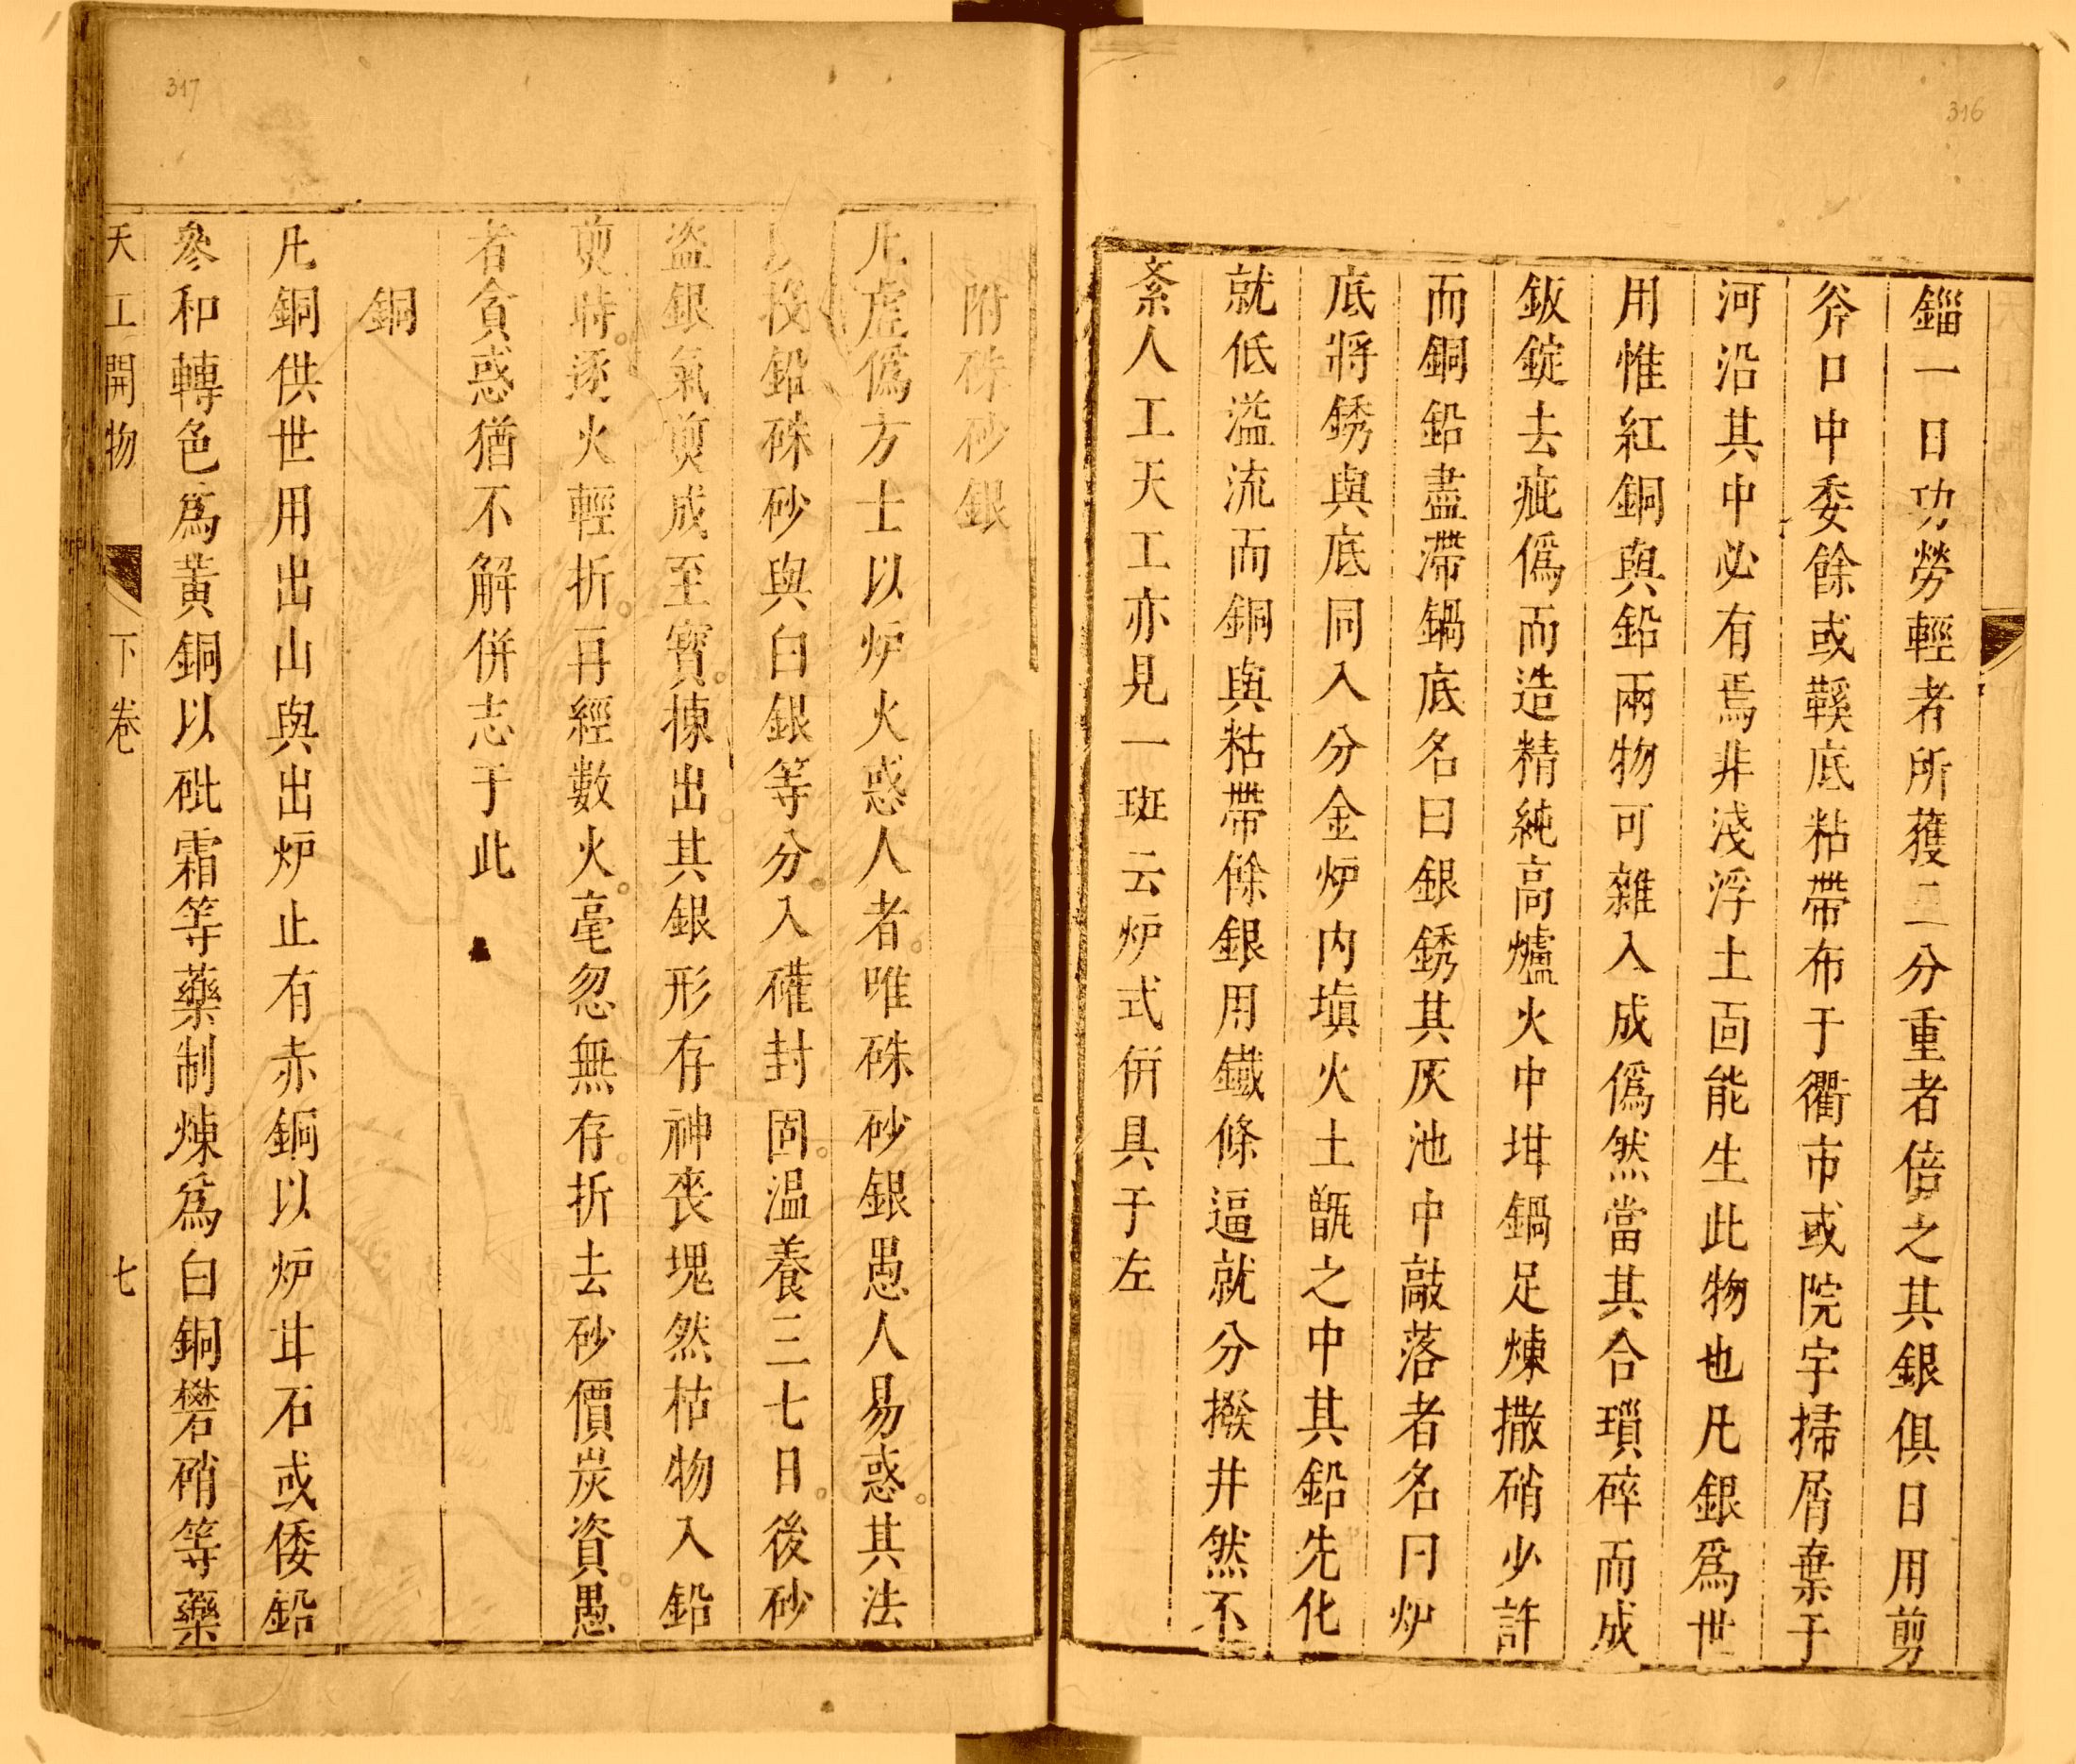 316
錙一日功勞輕者所獲二分重者倍之其銀俱日用剪
斧口中委餘或鞵底粘帶布于衢市或院宇掃屑棄于
河沿其中必有焉非淺浮土面能生此物也凡銀爲世
用惟紅銅與鉛兩物可雜入成僞然當其合瑣碎而成
鈑錠去疵僞而造精純高爐火中坩鍋足煉撒硝少許
而銅鉛盡滯鍋底名曰銀銹其灰池中敲落者名曰炉
底將銹與底同入分金炉內塡火土甑之中其鉛先化
就低溢流而銅與粘帶餘銀用鐵條逼就分撥井然不
紊人工天工亦見一斑云炉式併具于左
317
附硃砂銀
凡虛僞方士以炉火惑人者。唯硃砂銀愚人易惑。其法
以投鉛硃砂與白銀等分。入礶封固。温養三七日。後砂
盜銀氣煎成至寳。揀出其銀形存神喪塊然枯物入鉛
煎時。逐火輕折。再經數火。毫忽無存。折去砂價炭資愚
者貪惑猶不解併志于此
銅
凡銅供世用出山與出炉止有赤銅以炉甘石或倭鉛
參和轉色爲黃銅以砒霜等藥制煉爲白銅礬硝等藥
天工開物 下卷 七